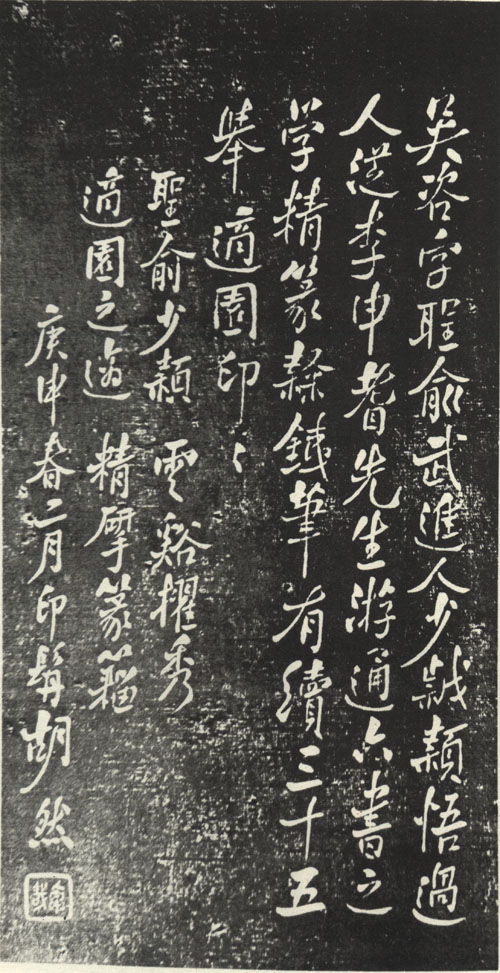 吳咨字聖俞武進人少穎悟過
人從李申耆先生游通六書之
学精篆隸鐵筆有續三十五
舉適園印〻
聖俞少穎 雲谿擢秀
適園之適 精揅篆籀
庚申春二月印髯胡然